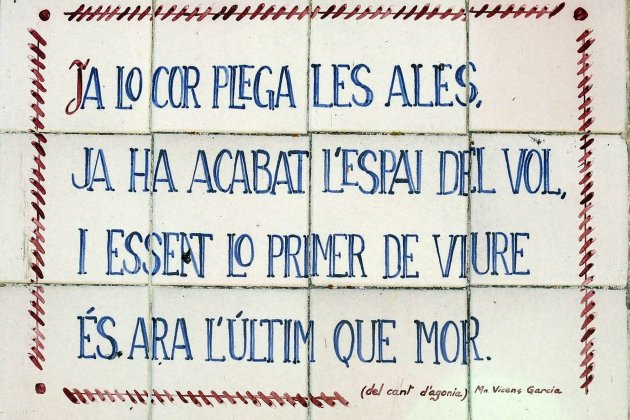 JA LO COR PLEGA LES ALES.
JA HA ACABAT L'ESPAI DEL VOL,
I ESSENT LO PRIMER DE VIURE
ÉS ARA L'ÚLTIM QUE MOR.
(del cant d'agonia) Mn Vicens Garcia